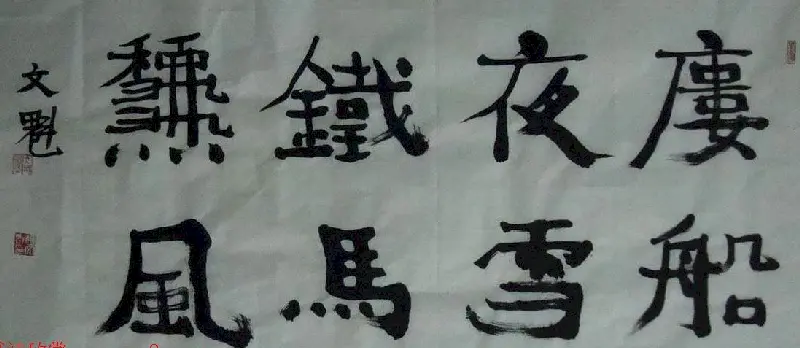 廔船
夜雪
鐵馬
龝風
文魁